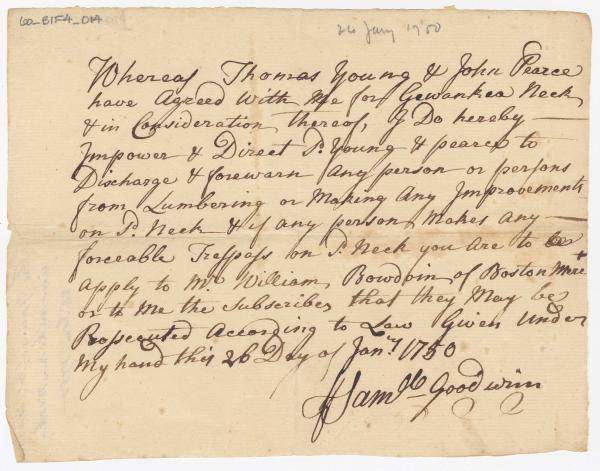 60_B1F4_014
26 Jany 1750
Whereas Thomas Young & John Pearce
have Agreed with Me for Gewankea Neck
& in Consideration thereof, I Do hereby
Impower & Direct Sd. Young & pearce to
Discharge & forewarn Any person or persons
from Lumbering or Making Any Improvements
on Sd. Neck & if any person Makes Any
forceable Trespass on Sd. Neck you Are to
Apply to Mr. William Bowdoin of Boston Mert
or to Me the Subscriber that they May be
Prosecuted According to Law Given Under
My hand this 26 Day of Jany. 1750
Samll Goodwin